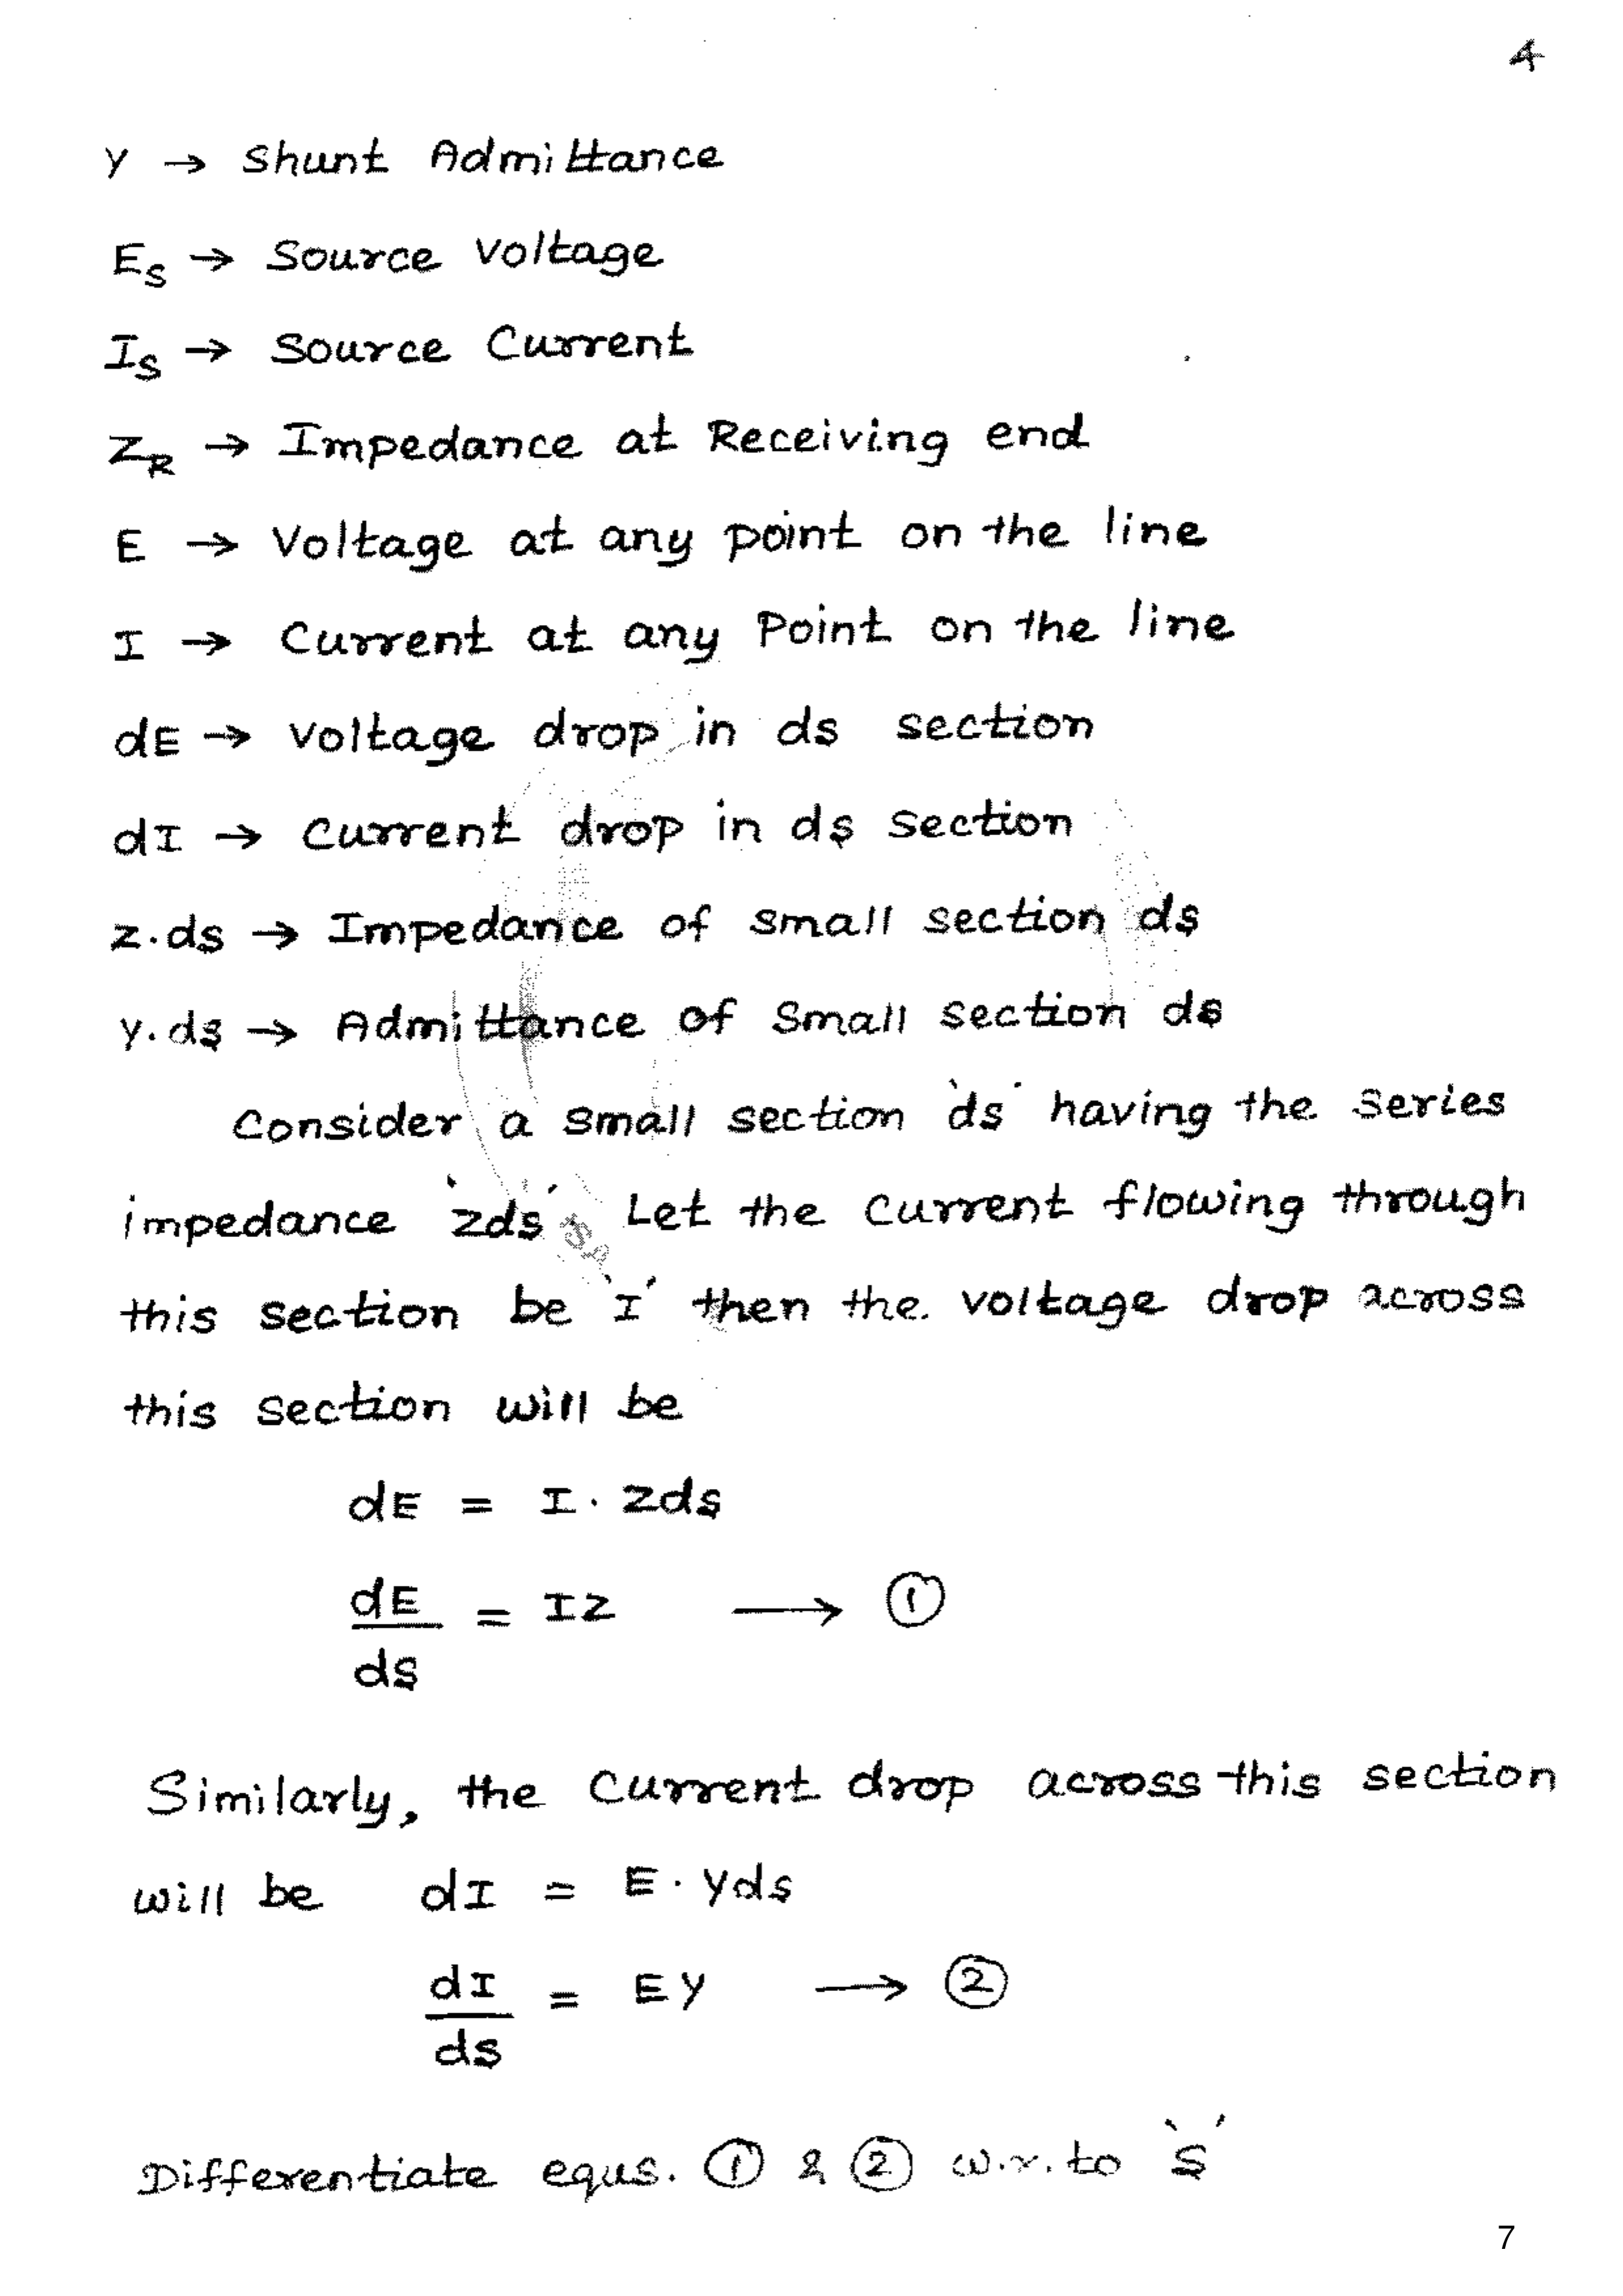 4
Y → Shunt Admittance
E_S → Source Voltage
I_S → Source Current
Z_R → Impedance at Receiving end
E → Voltage at any point on the line
I → Current at any Point on the line
dE → Voltage drop in ds section
dI → Current drop in ds section
z.ds → Impedance of small section ds
y.ds → Admittance of Small section ds
Consider a small section 'ds' having the series
impedance 'zds' Let the Current flowing through
this section be 'I' then the voltage drop across
this section will be
dE = I . Zds
dE/ds = IZ → ①
Similarly, the Current drop across this section
will be dI = E . Yds
dI/ds = EY → ②
Differentiate equs. ① & ② w.r.to 's'
7